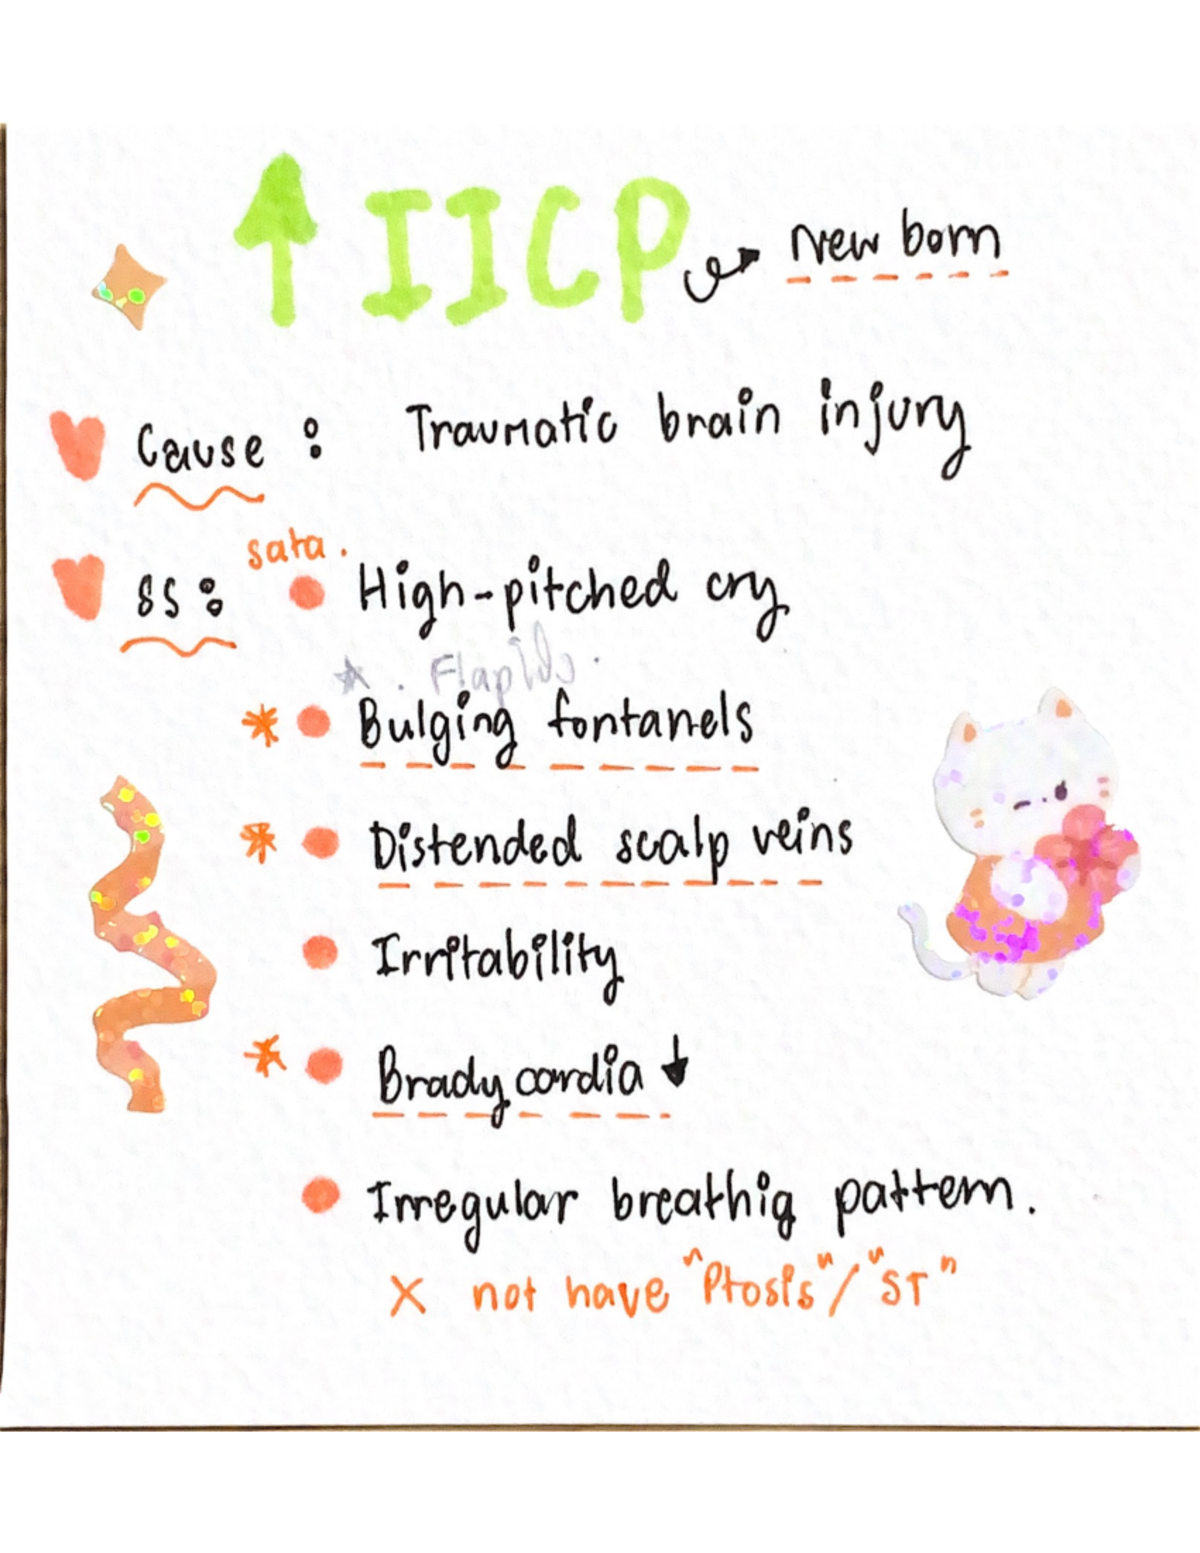 ↑ IICP → New born
Cause : Traumatic brain injury
sata.
SS : • High-pitched cry
* • Bulging fontanels
* • Distended scalp veins
• Irritability
* • Bradycardia ↓
• Irregular breathig pattern.
X not have "Ptosis" / "ST"